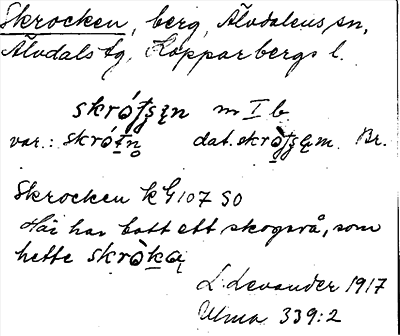 Skrocken, berg, Älvdalens sn,
Älvdals tg, Kopparbergs l.
skrót̠ʂęn m I b.
var.: skrót̠n̥ dat. skròt̠ʂęm. Br.
Skrocken k G 107 SO
Här har bott ett skogsrå, som
hette skròką
L. Levander 1917
Ulma 339:2